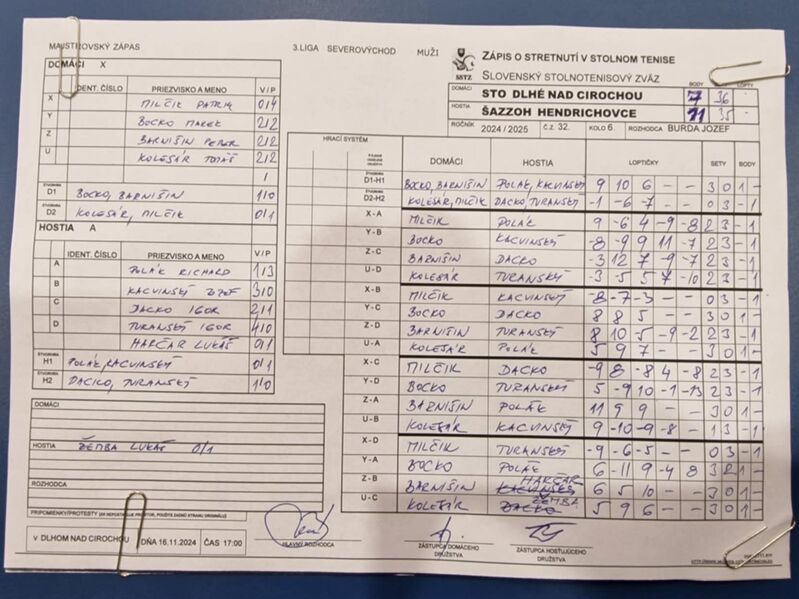 MAJSTROVSKÝ ZÁPAS
3.LIGA SEVEROVÝCHOD MUŽI
ZÁPIS O STRETNUTÍ V STOLNOM TENISE
SSTZ SLOVENSKÝ STOLNOTENISOVÝ ZVÄZ
BODY LOPTY
DOMÁCI STO DLHÉ NAD CIROCHOU 7 36
HOSTIA ŠAZZOH HENDRICHOVCE 11 35
ROČNÍK 2024 / 2025 Č.Z. 32. KOLO 6. ROZHODCA BURDA JOZEF
DOMÁCI X
IDENT. ČÍSLO PRIEZVISKO A MENO V / P
X MILČIK PATRIK 0/4
Y BOCKO MAREK 2/2
Z BARNIŠIN PETER 2/2
U KOLESÁR TOMÁŠ 2/2
/
D1 BOCKO, BARNIŠIN 1/0
D2 KOLESÁR, MILČIK 0/1
HOSTIA A
IDENT. ČÍSLO PRIEZVISKO A MENO V/P
A POLÁK RICHARD 1/3
B KACVINSKÝ JOZEF 3/0
C DACKO IGOR 2/1
D TURANSKÝ IGOR 4/0
HARČAR LUKÁŠ 0/1
H1 POLÁK, KACVINSKÝ 0/1
H2 DACKO, TURANSKÝ 1/0
DOMÁCI
HOSTIA ŽEMBA LUKÁŠ 0/1
ROZHODCA
HRACÍ SYSTÉM DOMÁCI HOSTIA LOPTIČKY SETY BODY
D1-H1 BOCKO, BARNIŠIN POLÁK, KACVINSKÝ 9 10 6 - - 3 0 1 -
D2-H2 KOLESÁR, MILČIK DACKO, TURANSKÝ -1 -6 -7 - - 0 3 - 1
X - A MILČIK POLÁK 9 -6 4 -9 -8 2 3 - 1
Y - B BOCKO KACVINSKÝ -8 -9 9 11 -7 2 3 - 1
Z - C BARNIŠIN DACKO -3 12 7 -9 -7 2 3 - 1
U - D KOLESÁR TURANSKÝ -3 -5 5 7 -10 2 3 - 1
X - B MILČIK KACVINSKÝ -8 -7 -3 - - 0 3 - 1
Y - C BOCKO DACKO 8 8 5 - - 3 0 1 -
Z - D BARNIŠIN TURANSKÝ 8 10 -5 -9 -2 2 3 - 1
U - A KOLESÁR POLÁK 5 9 7 - - 3 0 1 -
X - C MILČIK DACKO -9 8 -8 4 -8 2 3 - 1
Y - D BOCKO TURANSKÝ 5 -9 10 -1 -13 2 3 - 1
Z - A BARNIŠIN POLÁK 11 9 9 - - 3 0 1 -
U - B KOLESÁR KACVINSKÝ 9 -10 -9 -8 - 1 3 - 1
X - D MILČIK TURANSKÝ -9 -6 -5 - - 0 3 - 1
Y - A BOCKO POLÁK 6 -11 9 -4 8 3 2 1 -
HARČAR
Z - B BARNIŠIN KACVINSKÝ 6 5 10 - - 3 0 1 -
ŽEMBA
U - C KOLESÁR DACKO 5 9 6 - - 3 0 1 -
PRIPOMIENKY/PROTESTY
V DLHOM NAD CIROCHOU DŇA 16.11.2024 ČAS 17:00
HLAVNÝ ROZHODCA
ZÁSTUPCA DOMÁCEHO DRUŽSTVA
ZÁSTUPCA HOSŤUJÚCEHO DRUŽSTVA